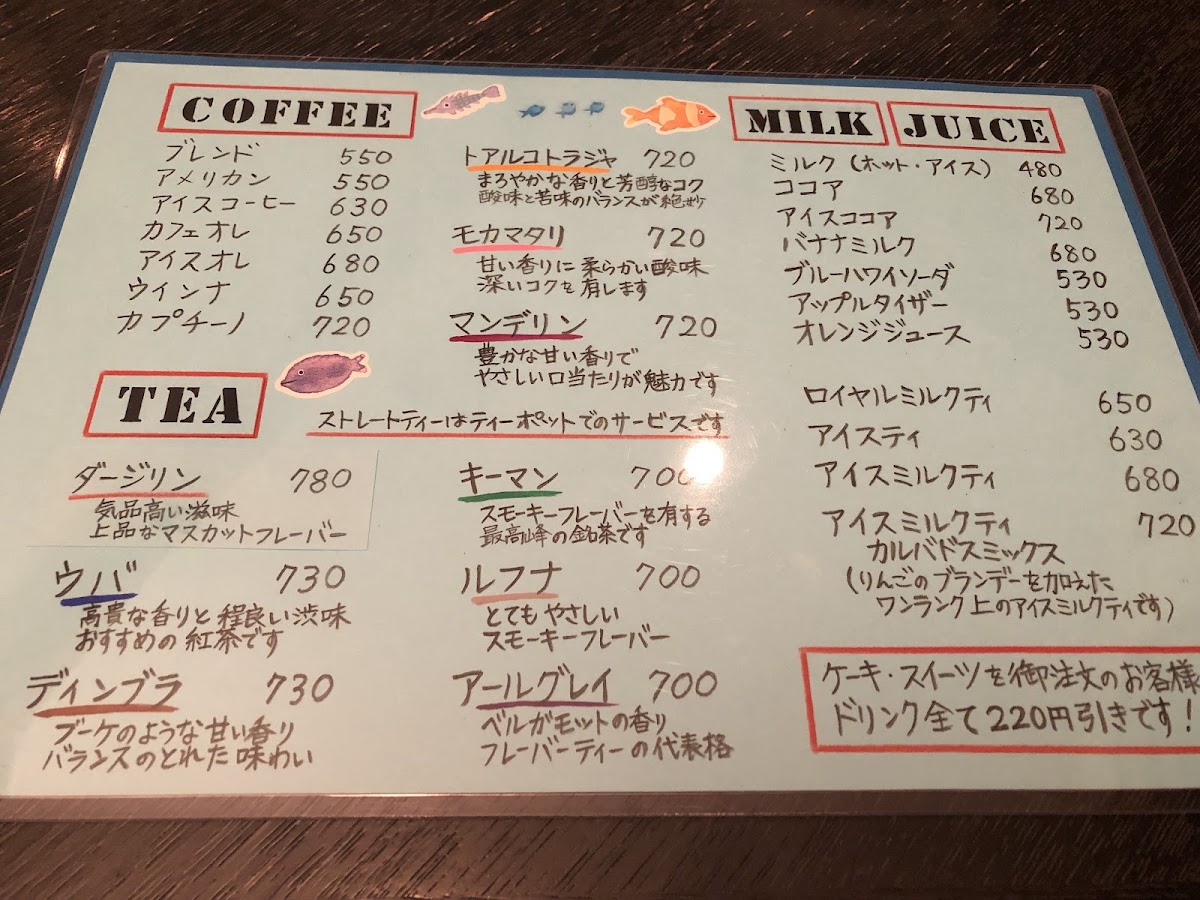 COFFEE
ブレンド 550
アメリカン 550
アイスコーヒー 630
カフェオレ 650
アイスオレ 680
ウインナ 650
カプチーノ 720
トアルコトラジャ 720
まろやかな香りと芳醇なコク
酸味と苦味のバランスが絶妙
モカマタリ 720
甘い香りに柔らかい酸味
深いコクを有します
マンデリン 720
豊かな甘い香りで
やさしい口当たりが魅力です
TEA
ストレートティーはティーポットでのサービスです
ダージリン 780
気品高い滋味
上品なマスカットフレーバー
ウバ 730
高貴な香りと程良い渋味
おすすめの紅茶です
ディンブラ 730
ブーケのような甘い香り
バランスのとれた味わい
キーマン 700
スモーキーフレーバーを有する
最高峰の銘茶です
ルフナ 700
とてもやさしい
スモーキーフレーバー
アールグレイ 700
ベルガモットの香り
フレーバーティーの代表格
MILK JUICE
ミルク(ホット・アイス) 480
ココア 680
アイスココア 720
バナナミルク 680
ブルーハワイソーダ 530
アップルタイザー 530
オレンジジュース 530
ロイヤルミルクティ 650
アイスティ 630
アイスミルクティ 680
アイスミルクティ 720
カルバドスミックス
(りんごのブランデーを加えた
ワンランク上のアイスミルクティです)
ケーキ・スイーツを御注文のお客様
ドリンク全て220円引きです!